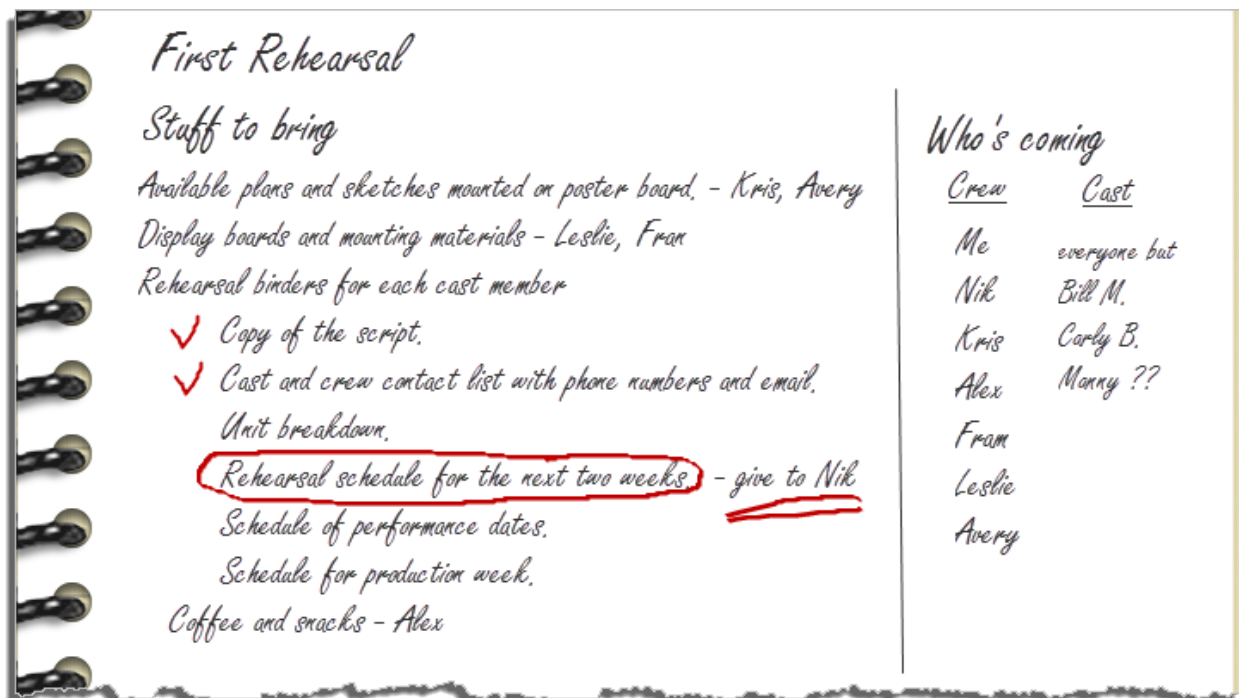 First Rehearsal
Stuff to bring
Available plans and sketches mounted on poster board. - Kris, Avery
Display boards and mounting materials - Leslie, Fran
Rehearsal binders for each cast member
Copy of the script.
Cast and crew contact list with phone numbers and email.
Unit breakdown.
Rehearsal schedule for the next two weeks. - give to Nik
Schedule of performance dates.
Schedule for production week.
Coffee and snacks - Alex
Who's coming
Crew
Me
Nik
Kris
Alex
Fram
Leslie
Avery
Cast
everyone but
Bill M.
Carly B.
Manny ??